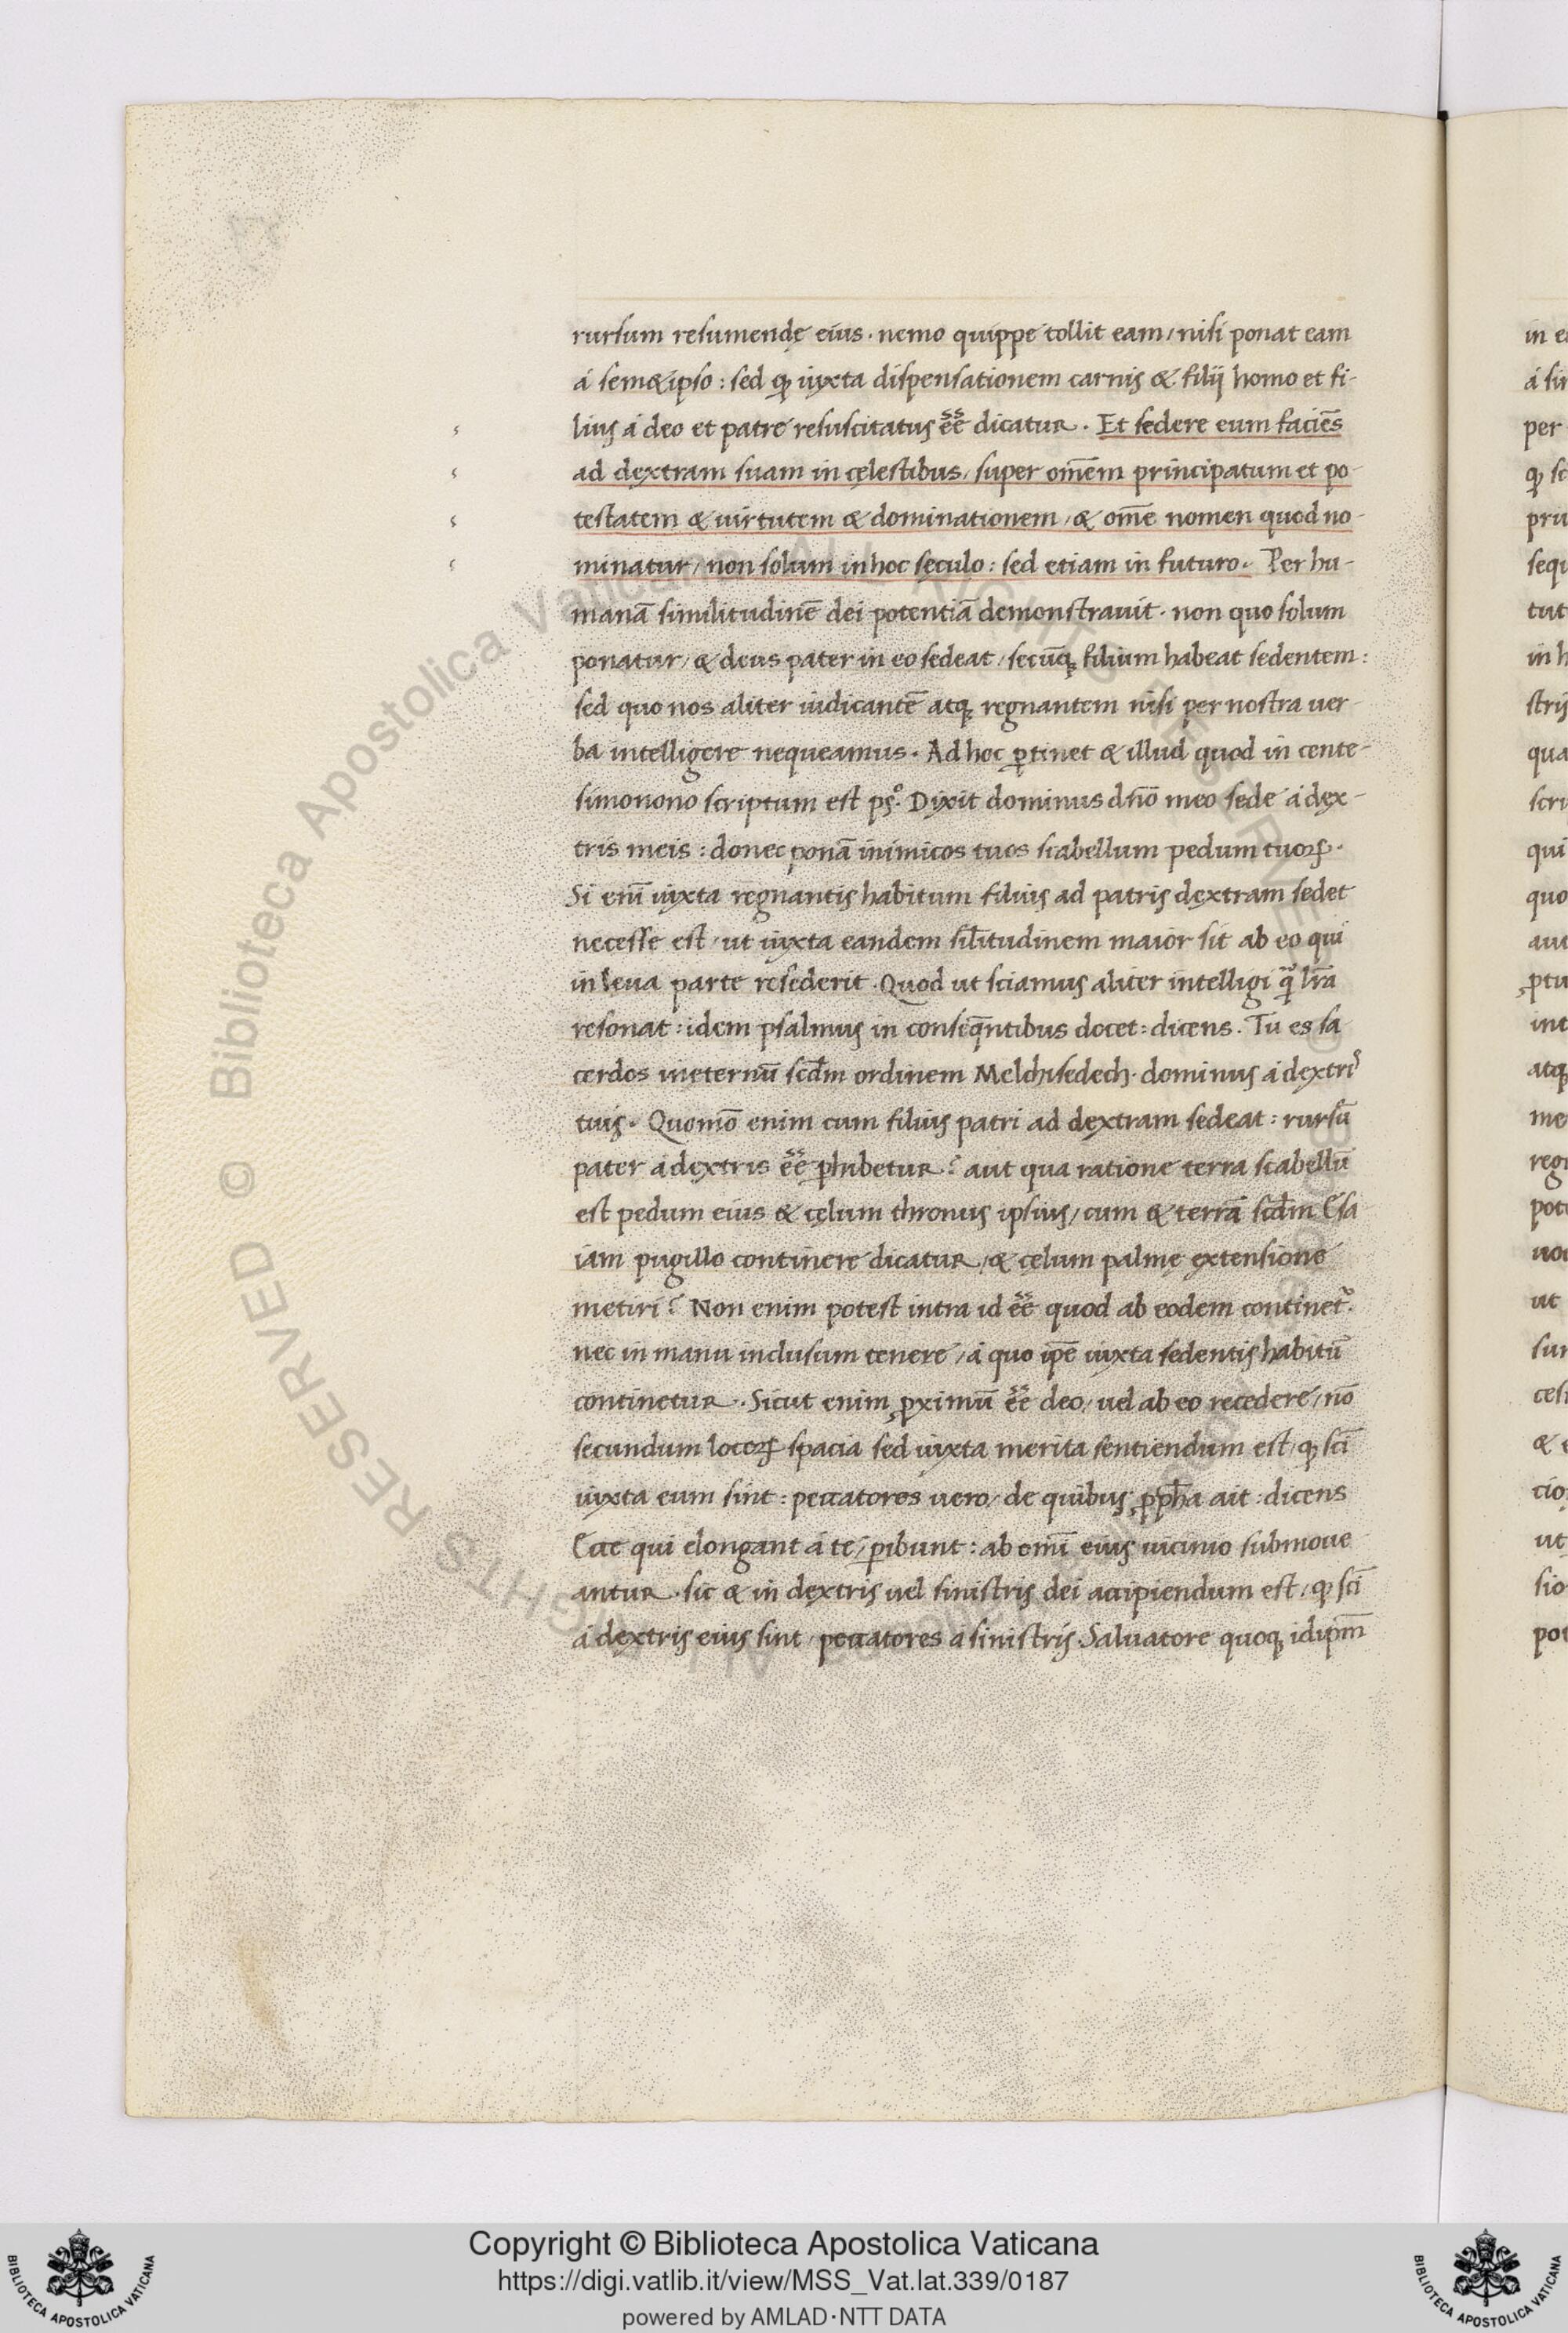 rursum resumendę eius · nemo quippe tollit eam / nisi ponat eam
á sem&ipso : sed ꝙ iuxta dispensationem carnis & filij homo et fi-
lius á deo et patre resuscitatus eē dicatur . Et sedere eum faciēs
ad dextram suam in cęlestibus / super om̄em principatum et po-
testatem & uirtutem & dominationem / & om̄e nomen quod no-
minatur / non solum in hoc seculo : sed etiam in futuro . Per hu-
manā similitudinē dei potentiā demonstrauit . non quo solum
ponatur / & deus pater in eo sedeat / secūqꝫ filium habeat sedentem :
sed quo nos aliter iudicantē atqꝫ regnantem nisi per nostra uer-
ba intelligere nequeamus . Ad hoc ꝑtinet & illud quod in cente-
simonono scriptum est psº . Dixit dominus dño meo sede á dex-
tris meis : donec ponā inimicos tuos scabellum pedum tuoꝝ .
Si eni̅ iuxta regnantis habitum filius ad patris dextram sedet
necesse est / ut iuxta eandem sil̄itudinem maior sit ab eo qui
in leua parte resederit . Quod ut sciamus aliter intelligi qᷓ lr̄a
resonat : idem psalmus in conseq̄ntibus docet : dicens . Tu es sa
cerdos ineternū scd̄m ordinem Melchisedech . dominus á dextriˢ
tuis . Quomō enim cum filius patri ad dextram sedeat : rursū
pater á dextris eē ꝑhibetur ? aut qua ratione terra scabellū
est pedum eius & cęlum thronus ipsius / cum & terrā scd̄m Esa
iam pugillo continere dicatur / & cęlum palmę extensione
metiri ? Non enim potest intra id eē quod ab eodem continet᷑ .
nec in manu inclusum tenere / á quo ip̄e iuxta sedentis habitū
continetur . Sicut enim ꝓximū eē deo / uel ab eo recedere / nō
secundum locoꝝ spacia sed iuxta merita sentiendum est / ꝙ sc̄i
iuxta eum sint : peccatores uero / de quibus ꝓph̄a ait : dicens
Ecce qui elongant á te / ꝑibunt : ab omī eius uicinio submoue
antur . sic & in dextris uel sinistris dei accipiendum est / ꝙ sc̄i
á dextris eius sint / peccatores a sinistris . Saluatore quoqꝫ idip̄m
in
á sin
per
ꝙ
pru
sequ
tut
in h
stris
qua
scri
qui
quo
aut
int
atqꝫ
me
regn
pot
uo
ut
sun
&
cio
ut
sio
pot
© Biblioteca Apostolica Vaticana ALL RIGHTS RESERVED
Copyright © Biblioteca Apostolica Vaticana
https://digi.vatlib.it/view/MSS_Vat.lat.339/0187
powered by AMLAD·NTT DATA
BIBLIOTECA APOSTOLICA VATICANA
BIBLIOTECA APOSTOLICA VATICANA